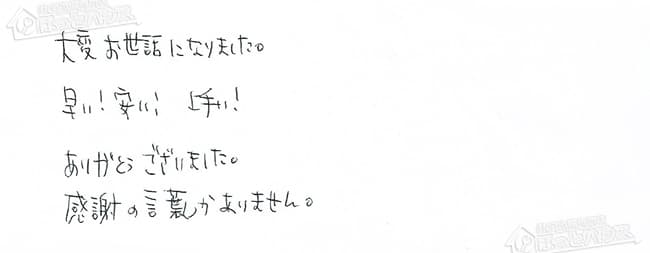 大変お世話になりました。
早い！安い！上手い！
ありがとうございました。
感謝の言葉しかありません。